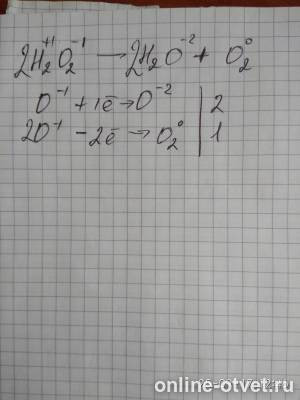 2H₂⁺¹O₂⁻¹ → 2H₂O⁻² + O₂⁰
O⁻¹ + 1ē → O⁻² | 2
2O⁻¹ - 2ē → O₂⁰ | 1
online-otvet.ru